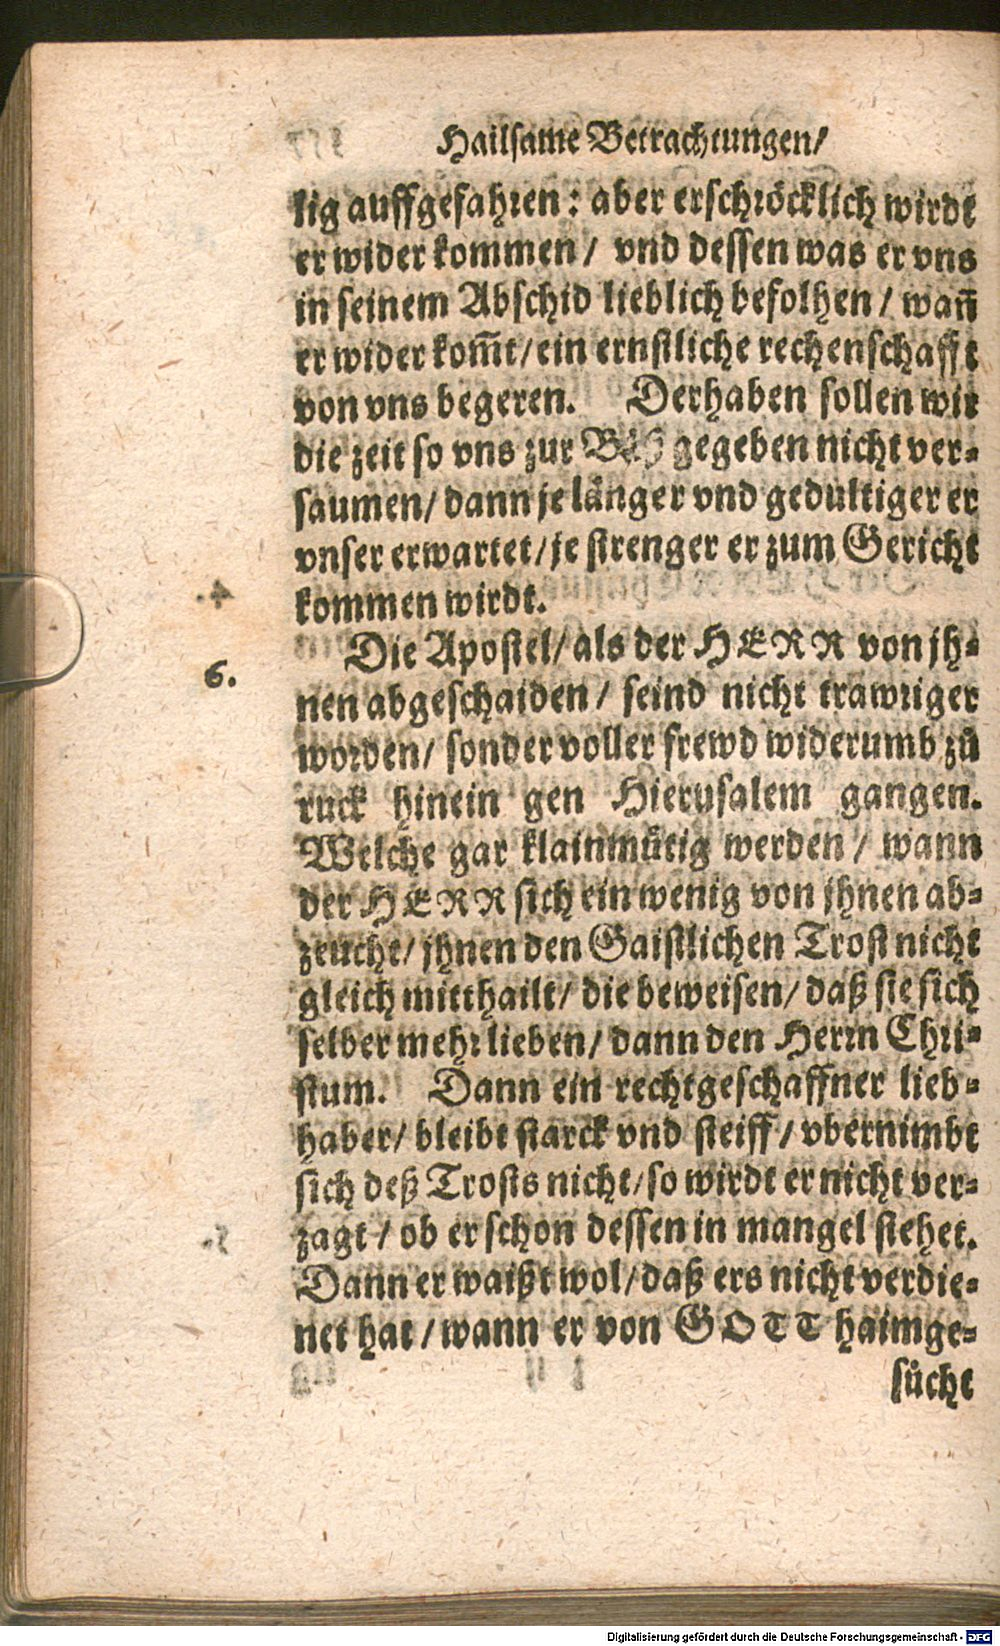 Hailsame Betrachtungen/
lig auffgefahren: aber erschröcklich wirdt
er wider kommen/ vnd dessen was er vns
in seinem Abschid lieblich befolhen/ wañ
er wider kom̃t/ ein ernstliche rechenschafft
von vns begeren. Derhaben sollen wir
die zeit so vns zur Bůß gegeben nicht ver-
saumen/ dann je länger vnd gedultiger er
vnser erwartet/ je strenger er zum Gericht
kommen wirdt.
6. Die Apostel/ als der HERR von jh-
nen abgeschaiden/ seind nicht trawriger
worden/ sonder voller frewd widerumb zů
ruck hinein gen Hierusalem gangen.
Welche gar klainmůtig werden/ wann
der HERR sich ein wenig von jhnen ab-
zeucht/ jhnen den Gaistlichen Trost nicht
gleich mitthailt/ die beweisen/ daß sie sich
selber mehr lieben/ dann den Herrn Chri-
stum. Dann ein rechtgeschaffner lieb-
haber/ bleibt starck vnd steiff/ vbernimbt
sich deß Trosts nicht/ so wirdt er nicht ver-
zagt/ ob er schon dessen in mangel stehet.
Dann er waißt wol/ daß ers nicht verdie-
net hat/ wann er von GOTT haimge-
sůcht
Digitalisierung gefördert durch die Deutsche Forschungsgemeinschaft - DFG